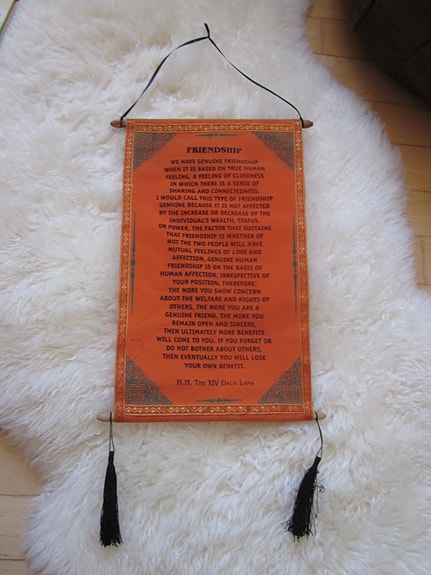 FRIENDSHIP
WE HAVE GENUINE FRIENDSHIP
WHEN IT IS BASED ON TRUE HUMAN
FEELING, A FEELING OF CLOSENESS
IN WHICH THERE IS A SENSE OF
SHARING AND CONNECTEDNESS.
I WOULD CALL THIS TYPE OF FRIENDSHIP
GENUINE BECAUSE IT IS NOT AFFECTED
BY THE INCREASE OR DECREASE OF THE
INDIVIDUAL'S WEALTH, STATUS,
OR POWER, THE FACTOR THAT SUSTAINS
THAT FRIENDSHIP IS WHETHER OF
NOT THE TWO PEOPLE WILL HAVE
MUTUAL FEELINGS OF LOVE AND
AFFECTION, GENUINE HUMAN
FRIENDSHIP IS ON THE BASIS OF
HUMAN AFFECTION, IRRESPECTIVE OF
YOUR POSITION, THEREFORE,
THE MORE YOU SHOW CONCERN
ABOUT THE WELFARE AND RIGHTS OF
OTHERS, THE MORE YOU ARE A
GENUINE FRIEND. THE MORE YOU
REMAIN OPEN AND SINCERE,
THEN ULTIMATELY MORE BENEFITS
WILL COME TO YOU. IF YOU FORGET OR
DO NOT BOTHER ABOUT OTHERS,
THEN EVENTUALLY YOU WILL LOSE
YOUR OWN BENEFIT.
H.H. THE XIV DALAI LAMA